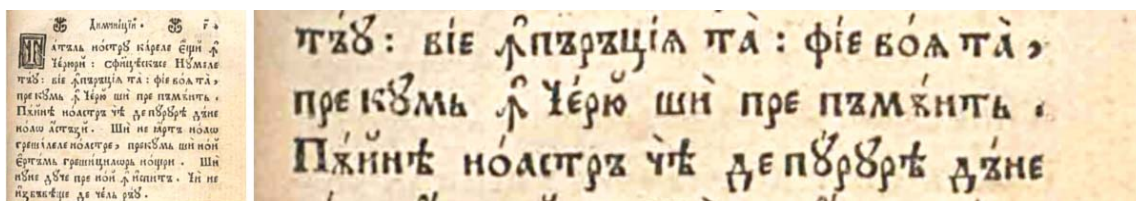 Димнїцїи.
Татъль нострꙋ кареле ещи ꙟ
Черюри : сфинцѣскъсе Нꙋмеле
тъꙋ : вїе ꙟпъръцїѧ та : фїе воѧ та,
прекꙋмь ꙟ Черю ши пре пъмѫнть.
Пѫйнѣ ноастръ чѣ депꙋрꙋрѣ дъне
ноаѡ астъзи. Ши не ꙗртъ ноаѡ
грешѣлеле ноастре, прекꙋмь ши ной
ертъмь грешицилѡрь нощри. Ши
нꙋне дꙋче пре ной ꙟ испитъ. Чи не
избъвѣще де чель ръꙋ.
тъꙋ : вїе ꙟпъръцїѧ та : фїе воѧ та,
прекꙋмь ꙟ Черю ши пре пъмѫнть.
Пѫйнѣ ноастръ чѣ депꙋрꙋрѣ дъне